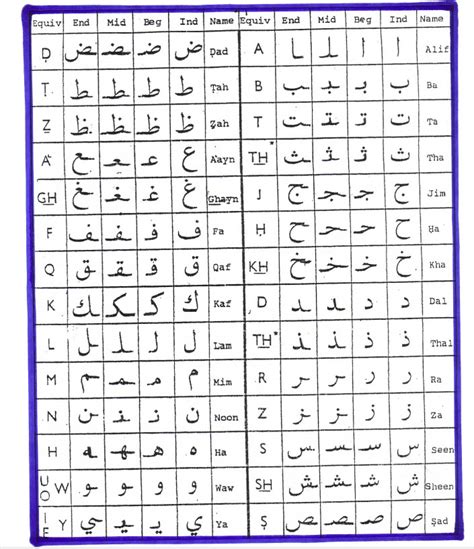 Equiv End Mid Beg Ind Name Equiv End Mid Beg Ind Name
Ḍ ـض ـضـ ضـ ض Ḍad A ـا ـا ا ا Alif
Ṭ ـط ـطـ طـ ط Ṭah B ـب ـبـ بـ ب Ba
Ẓ ـظ ـظـ ظـ ظ Ẓah T ـت ـتـ تـ ت Ta
ـع ـعـ عـ ع TH* ـث ـثـ ثـ ث Tha
GH ـغ ـغـ غـ غ Ghayn J ـج ـجـ جـ ج Jim
F ـف ـفـ فـ ف Fa Ḥ ـح ـحـ حـ ح Ḥa
Q ـق ـقـ قـ ق Qaf KH ـخ ـخـ خـ خ Kha
K ـك ـكـ كـ ك Kaf D ـد ـد د د Dal
L ـل ـلـ لـ ل Lam TH* ـذ ـذ ذ ذ Thal
M ـم ـمـ مـ م Mim R ـر ـر ر ر Ra
N ـن ـنـ نـ ن Noon Z ـز ـز ز ز Za
H ـه ـهـ هـ ه Ha S ـس ـسـ سـ س Seen
U O W ـو ـو و و Waw SH ـش ـشـ شـ ش Sheen
I E Y ـي ـيـ يـ ي Ya Ṣ ـص ـصـ صـ ص Ṣad